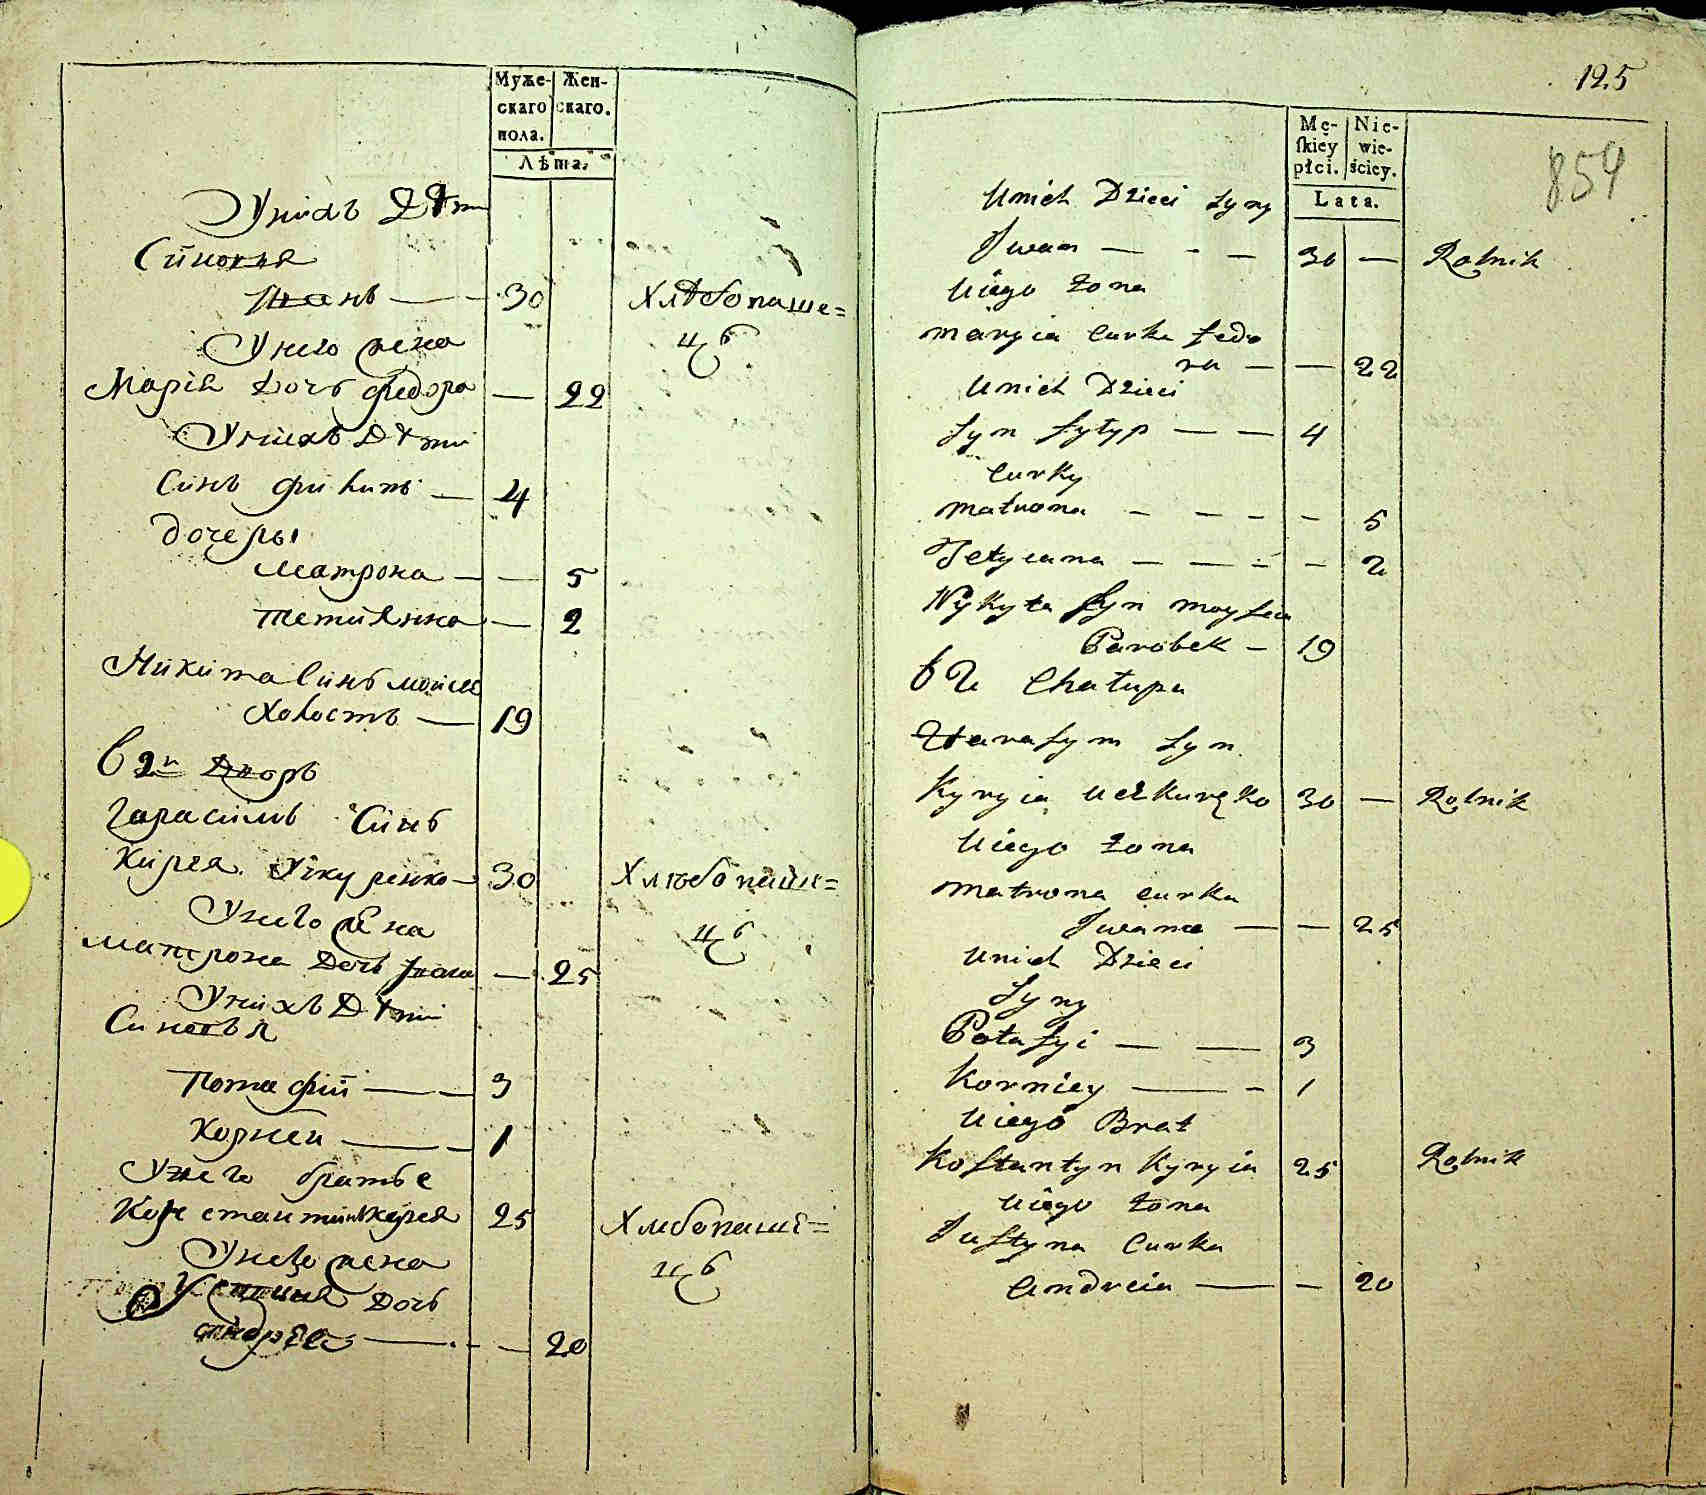 Муже- Жен-
скаго скаго.
пола.
Лѣта.
Унихъ Дѣти
Синовя
Иванъ — 30 Хлѣбопаше=
цъ
Унего жена
Марія Дочь федора — 22
Унихъ Дѣти
Синъ филипъ — 4
дочеры
Матрона — — 5
Тетиянна — 2
Никита Синъ моисея
Холостъ — 19
в 2м Дворѣ
Гарасимъ Синъ
Кирея Учкуренко — 30 Хлѣбопаше=
цъ
Унего жена
Матрона Дочь Ивана — 25
Унихъ Дѣти
Синовья
Потафій — — 3
Корней — — 1
Унего братъ
Константинъ Кирея 25 Хлѣбопаше=
цъ
Унего жена
Устиния Дочь
андрея — — 20
125
854
Mę- Nie-
skiey wie-
płci. ściey.
Lata.
Unich Dzieci Syny
Iwan — - — 30 — Rolnik
Uiego żona
Maryia Curka fedo
ra — — 22
Unich Dzieci
Syn fylyp — — 4
Curky
Matrona - — - - 5
Tetyana — — - - 2
Nykyta Syn Moyseia
Parobek — 19
6 2 Chałupa
Harasym Syn
Kyryia Uczkuręko 30 — Rolnik
Uiego żona
Matrona Curka
Iwana — — 25
Unich Dzieci
Syny
Potafyi — — 3
Korniey — - 1
Uiego Brat
Kostantyn Kyryia 25 Rolnik
Uiego żona
Justyna Curka
Andreia — — 20